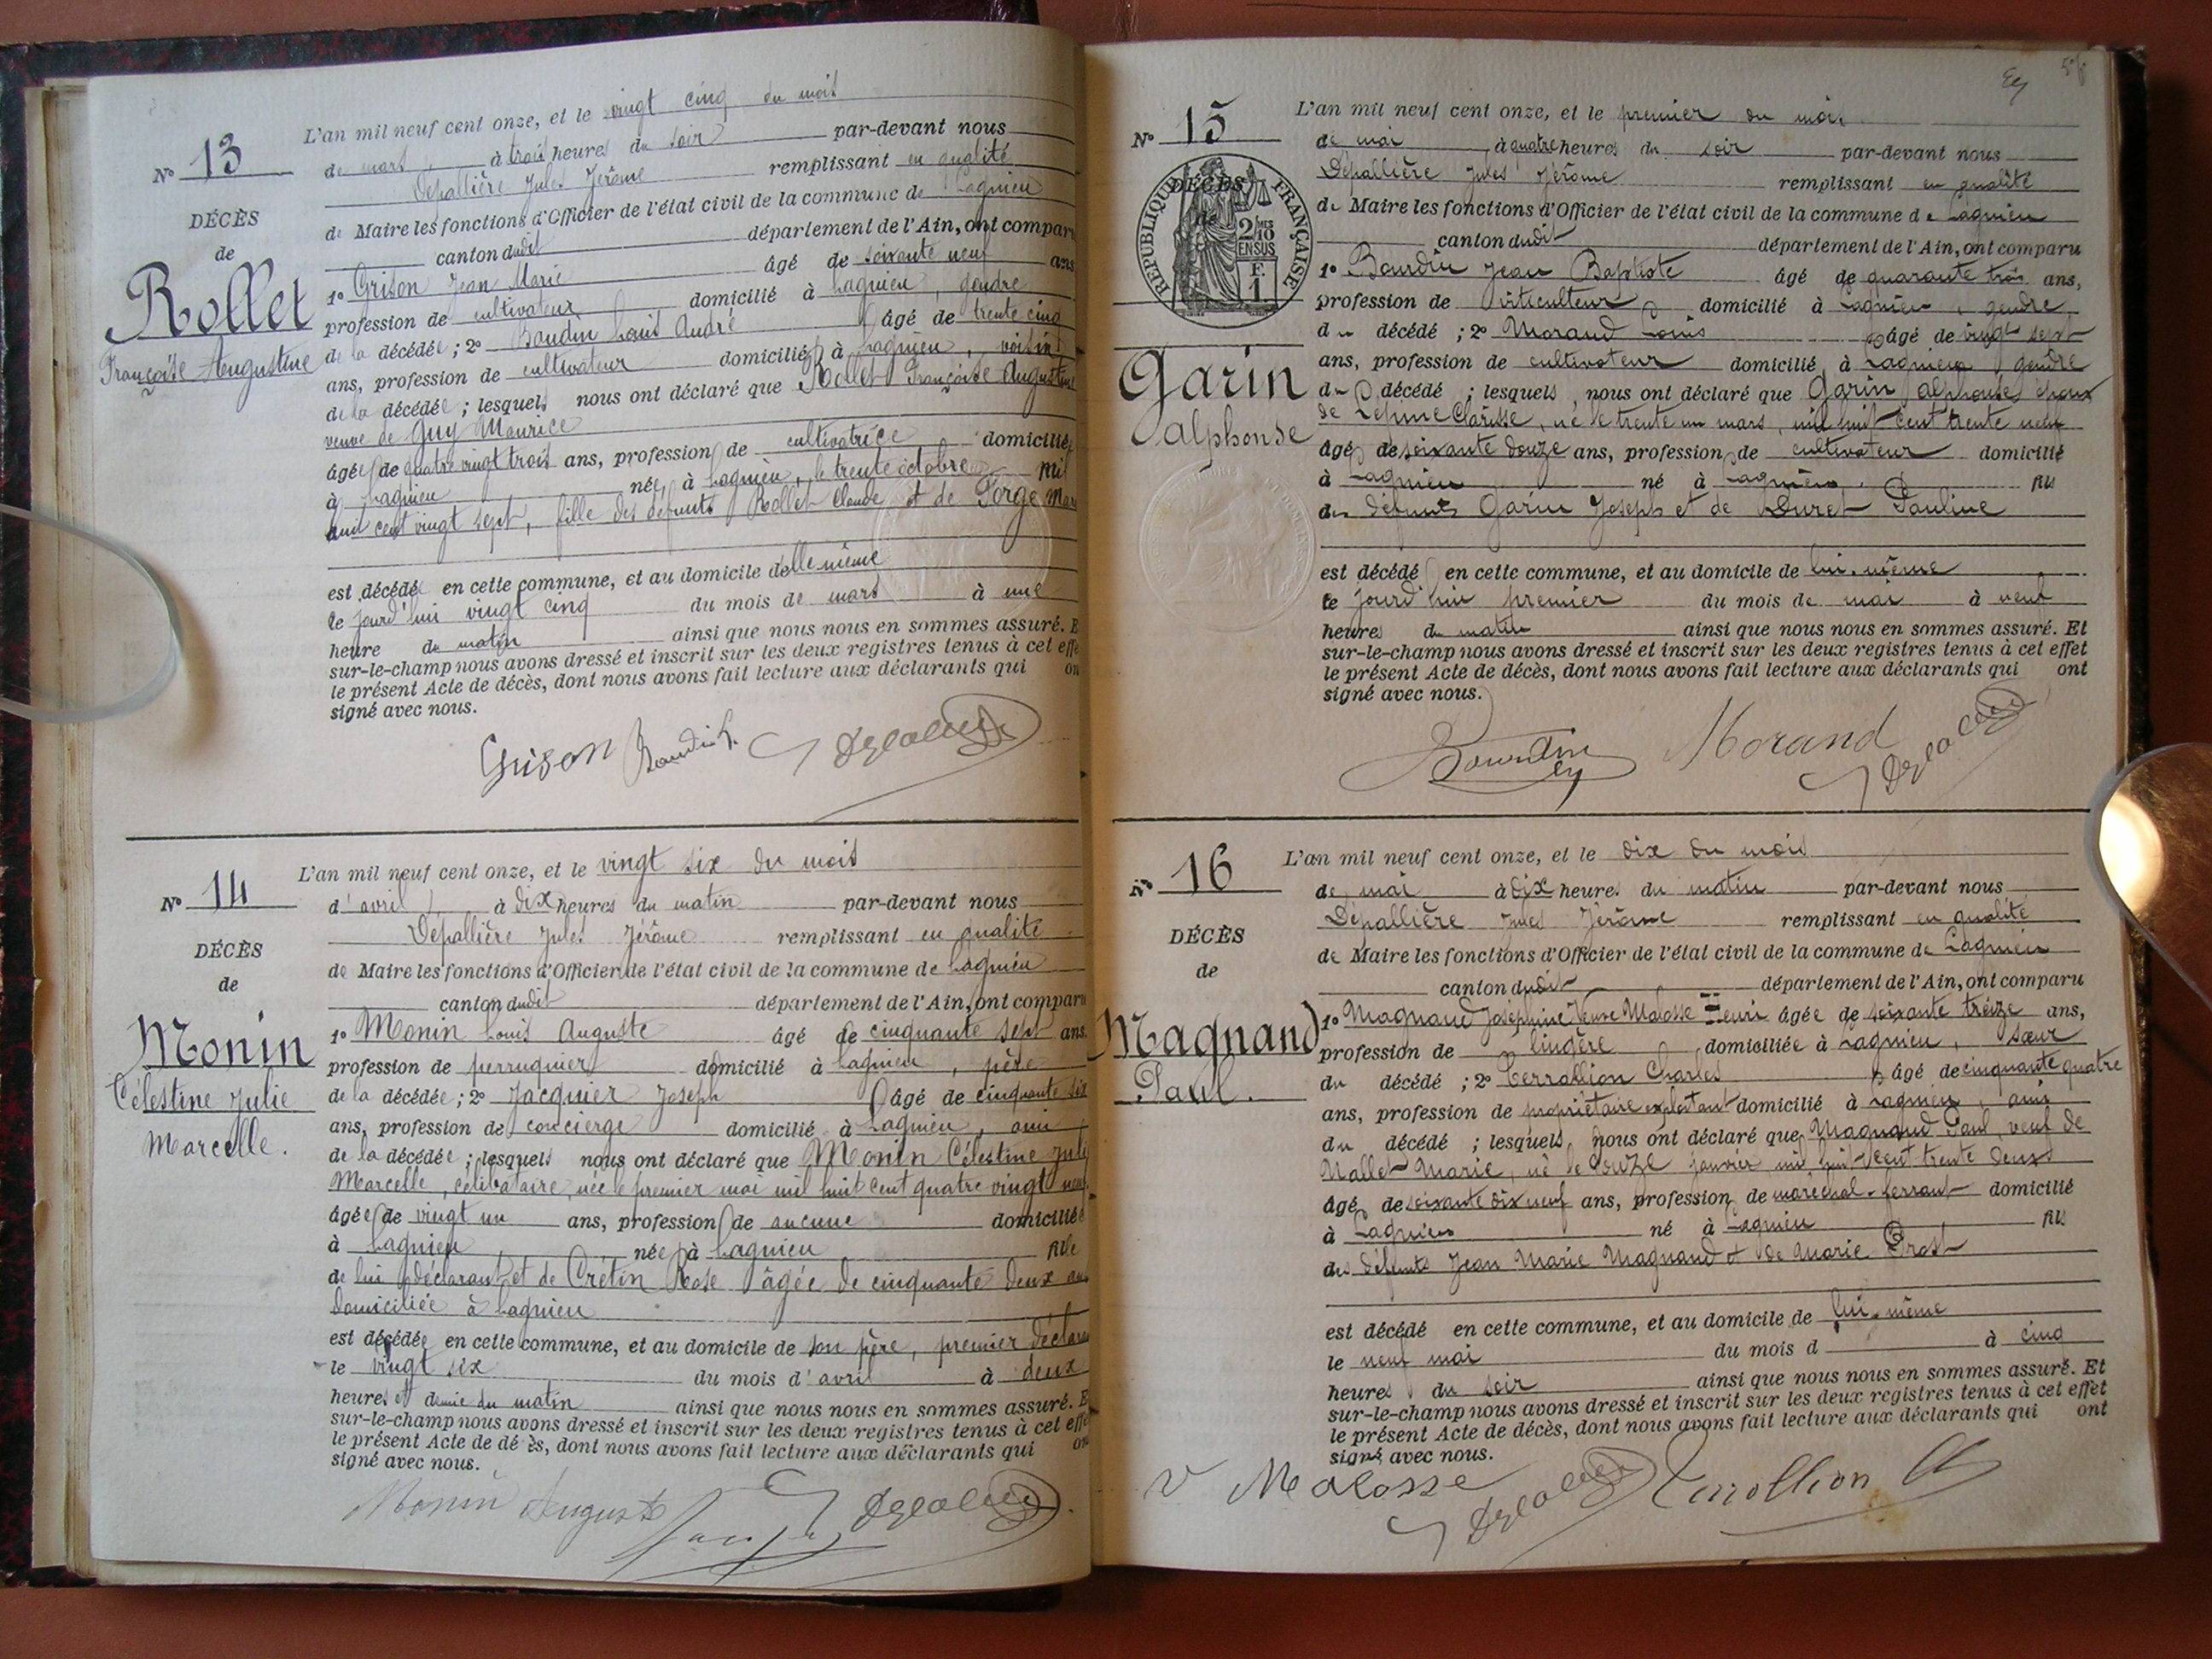 L'an mil neuf cent onze, et le vingt cinq du mois
N° 13
de mars à trois heures du soir par-devant nous
Dépallière Jules Jérôme remplissant en qualité
DÉCÈS
de Maire les fonctions d'Officier de l'état civil de la commune de Lagnieu
de
canton dudit département de l'Ain, ont comparu
Rollet
1° Grison Jean Marie âgé de soixante neuf ans
profession de cultivateur domicilié à Lagnieu, gendre
Françoise Augustine
de la décédée ; 2° Baudin Louis André âgé de trente cinq
ans, profession de cultivateur domicilié à Lagnieu, voisin
de la décédée ; lesquels nous ont déclaré que Rollet Françoise Augustine
veuve de Guy Maurice
âgée de quatre vingt trois ans, profession de cultivatrice domiciliée
à Lagnieu née à Lagnieu, le trente octobre mil
huit cent vingt sept, fille des défunts Rollet Claude et de Forge
est décédée en cette commune, et au domicile d'elle même
le jourd'hui vingt cinq du mois de mars à une
heure du matin ainsi que nous nous en sommes assuré. E
sur-le-champ nous avons dressé et inscrit sur les deux registres tenus à cet effe
le présent Acte de décès, dont nous avons fait lecture aux déclarants qui on
signé avec nous.
Grison Baudin L.
L'an mil neuf cent onze, et le vingt six du mois
N° 14
d'avril à dix heures du matin par-devant nous
Dépallière Jules Jérôme remplissant en qualité
DÉCÈS
de Maire les fonctions d'Officier de l'état civil de la commune de Lagnieu
de
canton dudit département de l'Ain, ont comparu
Monin
1° Monin Louis Auguste âgé de cinquante sept ans
profession de perruquier domicilié à Lagnieu, père
Célestine Julie
de la décédée ; 2° Jacquier Joseph âgé de cinquante six
ans, profession de concierge domicilié à Lagnieu, ami
Marcelle.
de la décédée ; lesquels nous ont déclaré que Monin Célestine Juli
Marcelle, célibataire, née le premier mai mil huit cent quatre vingt neuf
âgée de vingt un ans, profession de aucune domiciliée
à Lagnieu née à Lagnieu fille
de lui déclarant et de Crétin Rose âgée de cinquante deux ans
domiciliée à Lagnieu
est décédée en cette commune, et au domicile de son père, premier déclara
le vingt six du mois d'avril à deux
heures et demie du matin ainsi que nous nous en sommes assuré. E
sur-le-champ nous avons dressé et inscrit sur les deux registres tenus à cet effe
le présent Acte de dé ès, dont nous avons fait lecture aux déclarants qui on
signé avec nous.
Monin Auguste
L'an mil neuf cent onze, et le premier du mois
N° 15
de mai à quatre heures du soir par-devant nous
Dépallière Jules Jérôme remplissant en qualité
DÉCÈS
de
REPUBLIQUE FRANÇAISE
2/10 EN SUS
F.
1
de Maire les fonctions d'Officier de l'état civil de la commune de Lagnieu
canton dudit département de l'Ain, ont comparu
1° Bourdin Jean Baptiste âgé de quarante trois ans,
profession de viticulteur domicilié à Lagnieu, gendre
du décédé ; 2° Morand Louis âgé de vingt sept
ans, profession de cultivateur domicilié à Lagnieu gendre
Garin
du décédé ; lesquels nous ont déclaré que Garin alphonse époux
alphonse
de Clarisse, né le trente un mars, mil huit cent trente neuf
âgé de soixante douze ans, profession de cultivateur domicilié
à Lagnieu né à Lagnieu, fils
des défunts Garin Joseph et de Duret Pauline
est décédé en cette commune, et au domicile de lui-même
le jourd'hui premier du mois de mai à neuf
heures du matin ainsi que nous nous en sommes assuré. Et
sur-le-champ nous avons dressé et inscrit sur les deux registres tenus à cet effet
le présent Acte de décès, dont nous avons fait lecture aux déclarants qui ont
signé avec nous.
Bourdin Morand
L'an mil neuf cent onze, et le dix du mois
N° 16
de mai à dix heures du matin par-devant nous
Dépallière Jules Jérôme remplissant en qualité
DÉCÈS
de Maire les fonctions d'Officier de l'état civil de la commune de Lagnieu
de
canton dudit département de l'Ain, ont comparu
Magnand
1° Magnand Joséphine Veuve Malosse Henri âgée de soixante treize ans,
profession de lingère domiciliée à Lagnieu, sœur
Paul.
du décédé ; 2° Terrollion Charles âgé de cinquante quatre
ans, profession de propriétaire exploitant domicilié à Lagnieu, ami
du décédé ; lesquels nous ont déclaré que Magnand Paul, veuf de
Nallet Marie, né le douze janvier mil huit cent trente deux
âgé de soixante dix neuf ans, profession de marechal-ferrant domicilié
à Lagnieu né à Lagnieu fils
des défunts Jean Marie Magnand et de Marie Prost
est décédé en cette commune, et au domicile de lui-même
le neuf mai du mois d à cinq
heures du soir ainsi que nous nous en sommes assuré. Et
sur-le-champ nous avons dressé et inscrit sur les deux registres tenus à cet effet
le présent Acte de décès, dont nous avons fait lecture aux déclarants qui ont
signé avec nous.
V Malosse Terrollion